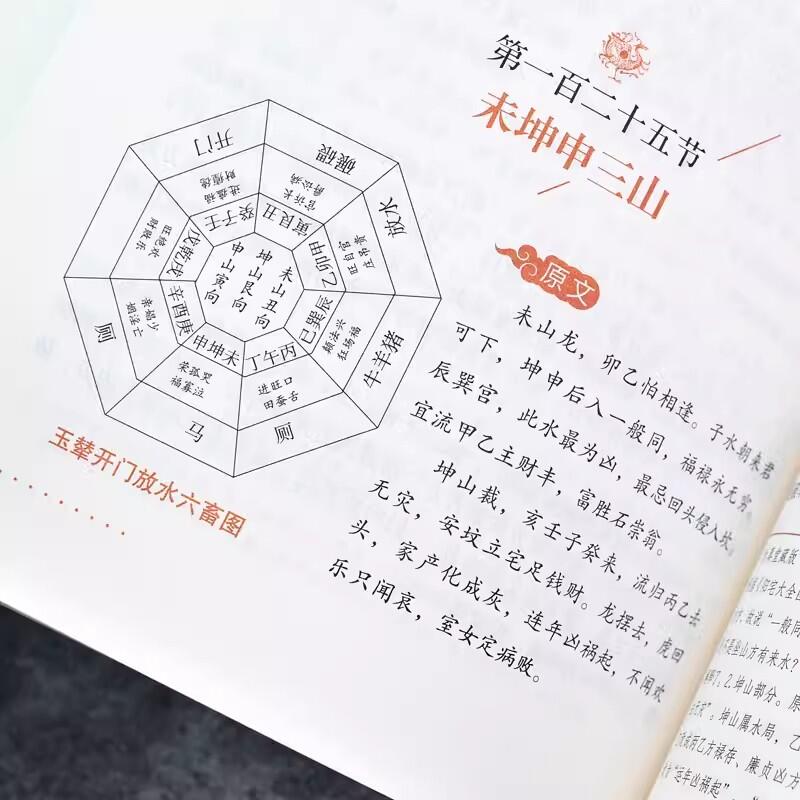 第一百二十五节
未坤申三山
原文
未山龙，卯乙怕相逢。子水朝来君
可下，坤申后入一般同，福禄永无穷。
辰巽宫，此水最为凶，最忌回头侵入坎，
宜流甲乙主财丰，富胜石崇翁。
坤山裁，亥壬子癸来，流归丙乙去
无灾，安坟立宅足钱财。龙摆去，虎回
头，家产化成灰，连年凶祸起，不闻欢
乐只闻哀，室女定病败。
开门
碾碨
放水
牛羊猪
厕
马
厕
进蕴福
财德德
官讼长
旺自官
颠法兴
狂场福
进旺口
田蚕舌
荣孤哭
福寡泣
癸子壬
寅艮丑
乙卯甲
巳巽辰
丁午丙
申坤未
辛酉庚
戊乾戌
未山丑向
坤山艮向
申山寅向
玉辇开门放水六畜图
故说“一般同
是坐山方有来水？
2.坤山部分。原
坤山属水局，乙
丙乙方禄存、廉贞凶方
“连年凶祸起”